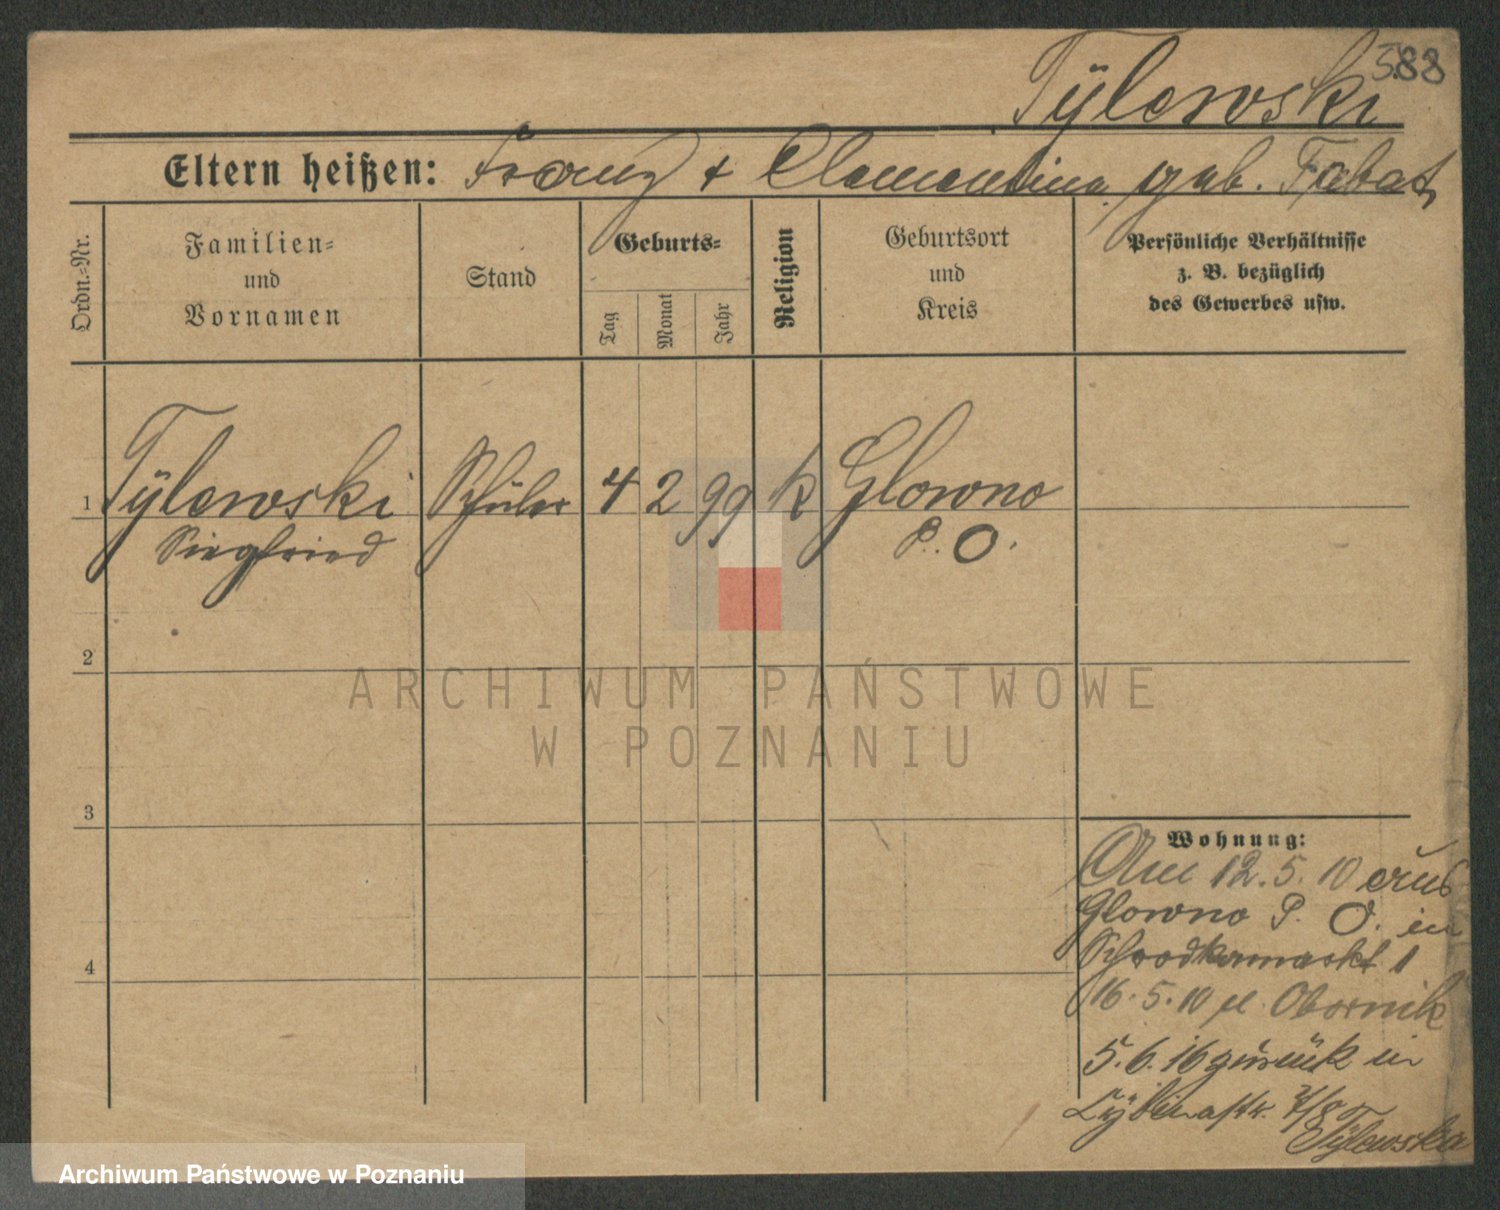 588
Tÿlewski
Eltern heißen: Franz + Clementina geb. Fabat
Ordn.-Nr.
Familien-
und
Vornamen
Stand
Geburts-
Tag
Monat
Jahr
Religion
Geburtsort
und
Kreis
Persönliche Verhältnisse
z. B. bezüglich
des Gewerbes usw.
1 Tÿlewski Schüler 4 2 99 k Glowno
Siegfried P. O.
2
ARCHIWUM PAŃSTWOWE
W POZNANIU
3
Wohnung:
Am 12. 5. 10 aus
Glowno P. O. in
Schrodkamarkt 1
4
16. 5. 10 n. Obornik
5. 6. 16 zurück in
Cybinastr. 7/8
Tÿlewska
Archiwum Państwowe w Poznaniu